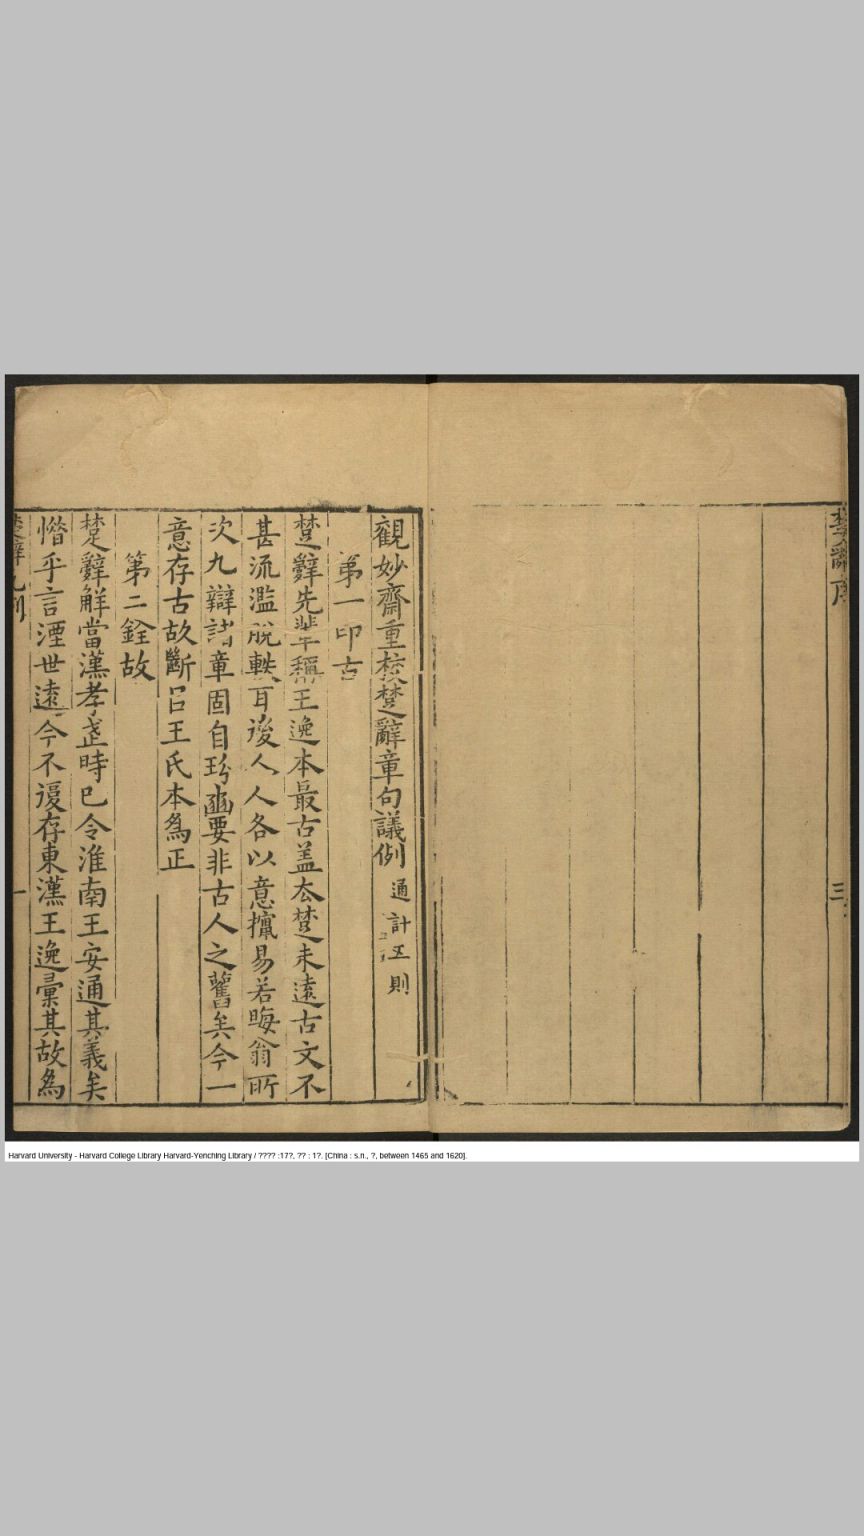 楚辭序
三
觀妙齋重挍楚辭章句議例 通計五則
第一印古
楚辭先輩稱王逸本最古盖厺楚未遠古文不
甚流濫脫軼耳後人人各以意攛易若晦翁所
次九辯諸章固自玢豳要非古人之舊矣今一
意存古故斷㠯王氏本爲正
第二銓故
楚辭解當漢孝武時已令淮南王安通其義矣
惜乎言湮世遠今不復存東漢王逸彙其故爲
楚辭凡例
一
Harvard University - Harvard College Library Harvard-Yenching Library / ???? :17?, ?? : 1?. [China : s.n., ?, between 1465 and 1620].